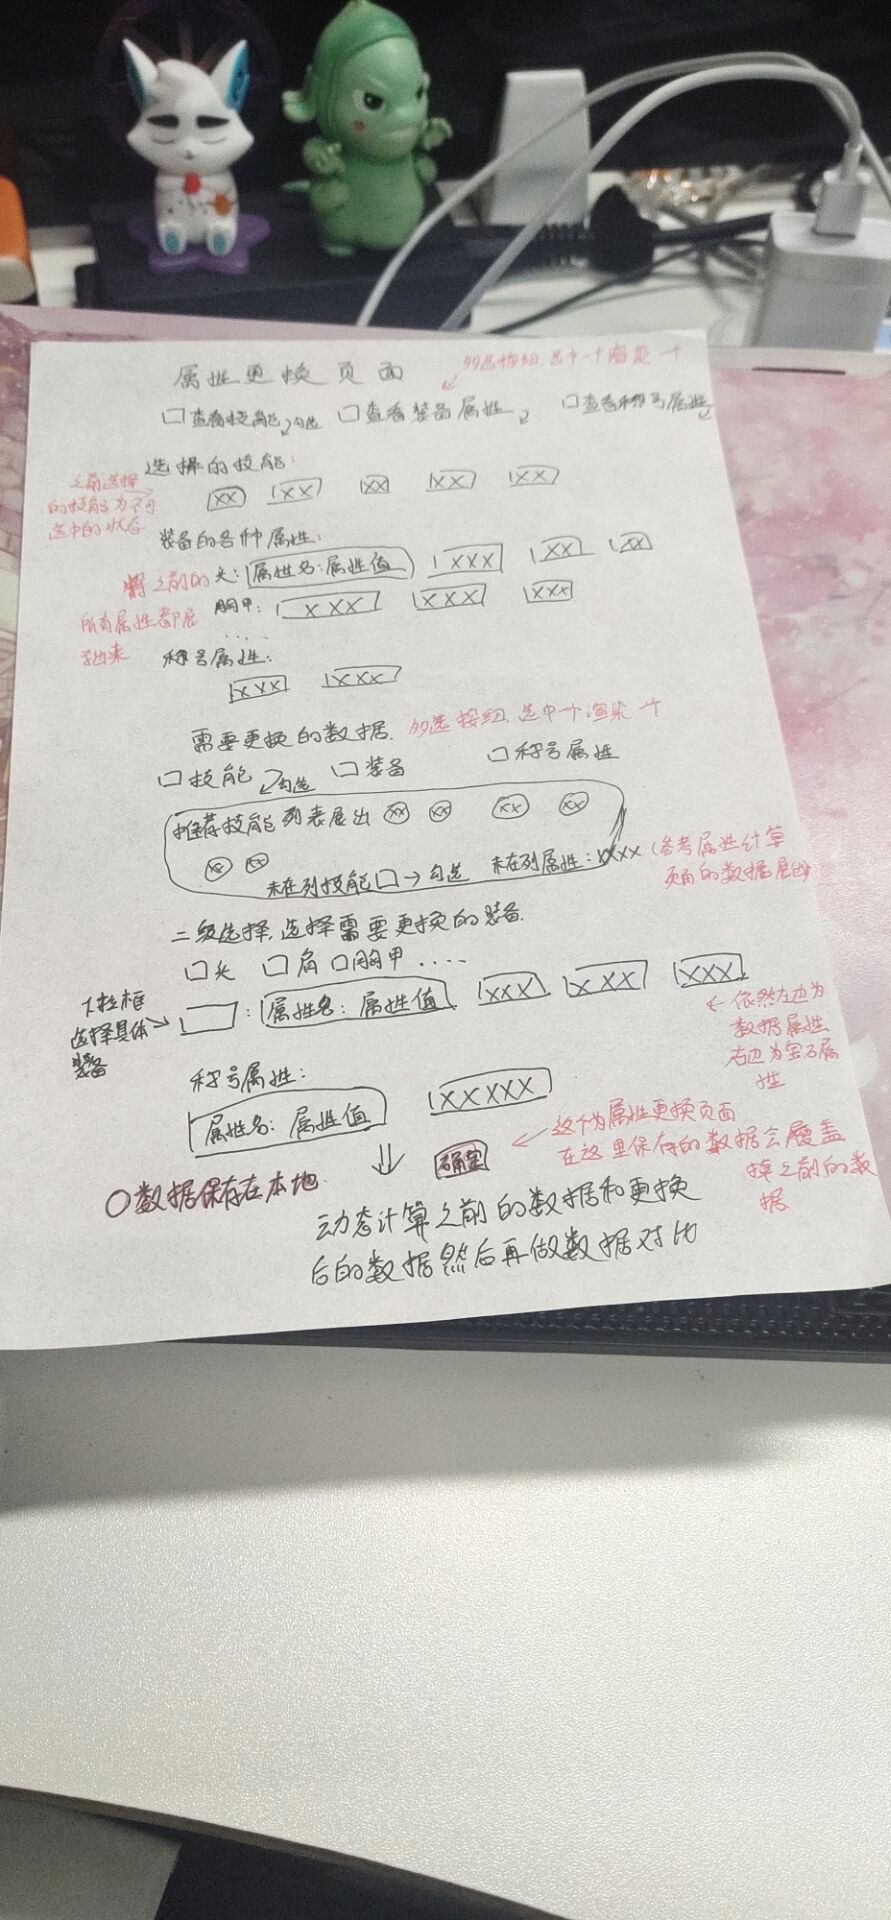 属性更换页面
多选按钮.选中一个渲染一个
□查看技能 勾选 □查看装备属性 □查看称号属性
选择的技能:
之前选择
的技能为不可
选中的状态
XX XX XX XX XX
装备的各种属性:
将之前的
所有属性都展
示出来
头: 属性名:属性值 XXX XX XX
胸甲: XXX XXX XXX
....
称号属性:
XXX XXX
需要更换的数据. 多选按钮.选中一个渲染一个
□技能 勾选 □装备 □称号属性
推荐技能列表展出 XX XX XX XX
XX XX
未在列技能□→勾选 未在列属性:XXXX
(参考属性计算
页面的数据展出)
二级选择,选择需要更换的装备.
□头 □肩 □胸甲 ....
下拉框
选择具体
装备
: 属性名: 属性值 XXX XXX XXX
←依然左边为
数据属性
右边为宝石属
性
称号属性:
属性名: 属性值 XXXXX
确定
这个为属性更换页面
在这里保存的数据会覆盖
掉之前的数
据.
○数据保存在本地.
动态计算之前的数据和更换
后的数据然后再做数据对比